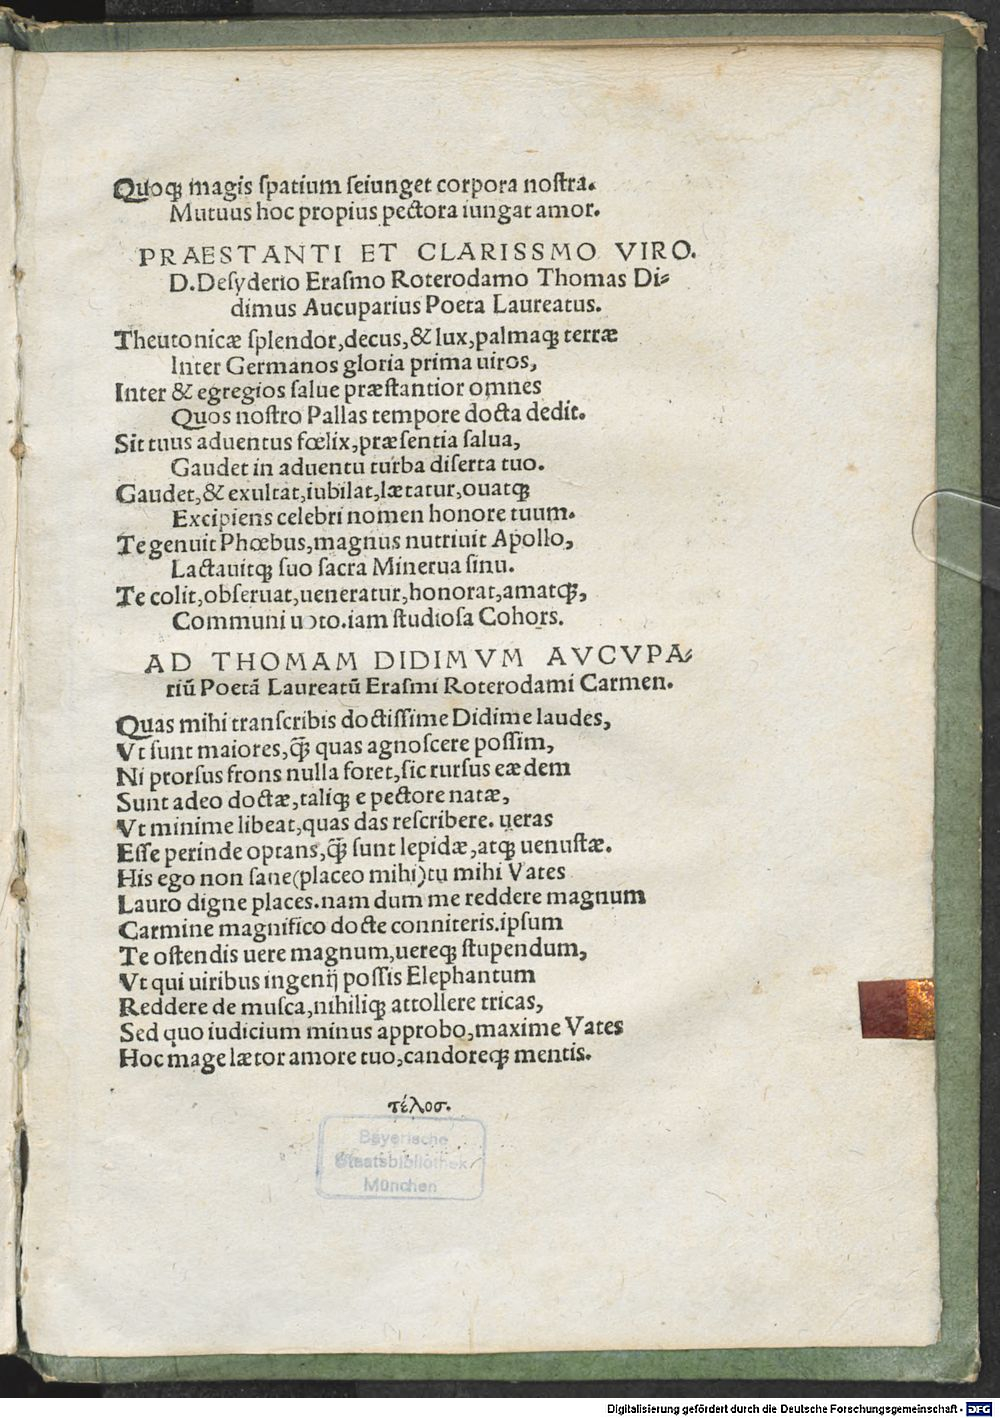 Quoqꝫ magis ſpatium ſeiunget corpora noſtra.
Mutuus hoc propius pectora iungat amor.
PRAESTANTI ET CLARISSMO VIRO.
D.Deſyderio Eraſmo Roterodamo Thomas Di⸗
dimus Aucuparius Poeta Laureatus.
Theutonicæ ſplendor,decus,&lux,palmaqꝫ terræ
Inter Germanos gloria prima uiros,
Inter & egregios ſalue præſtantior omnes
Quos noſtro Pallas tempore docta dedit.
Sit tuus aduentus fœlix,præſentia ſalua,
Gaudet in aduentu turba diſerta tuo.
Gaudet,& exultat,iubilat,lætatur,ouatqꝫ
Excipiens celebri nomen honore tuum.
Te genuit Phœbus,magnus nutriuit Apollo,
Lactauitqꝫ ſuo ſacra Minerua ſinu.
Te colit,obſeruat,ueneratur,honorat,amatqꝫ,
Communi uoto.iam ſtudioſa Cohors.
AD THOMAM DIDIMVM AVCVPA⸗
riū Poetā Laureatū Eraſmi Roterodami Carmen.
Quas mihi tranſcribis doctiſſime Didime laudes,
Vt ſunt maiores,q̄ꝫ quas agnoſcere poſſim,
Ni prorſus frons nulla foret,ſic rurſus eædem
Sunt adeo doctæ,taliqꝫ e pectore natæ,
Vt minime libeat,quas das reſcribere. ueras
Eſſe perinde optans,q̄ꝫ ſunt lepidæ,atqꝫ uenuſtæ.
His ego non ſane(placeo mihi)tu mihi Vates
Lauro digne places.nam dum me reddere magnum
Carmine magnifico docte conniteris.ipſum
Te oſtendis uere magnum,uereqꝫ ſtupendum,
Vt qui uiribus ingenij poſſis Elephantum
Reddere de muſca,nihiliqꝫ attollere tricas,
Sed quo iudicium minus approbo,maxime Vates
Hoc mage lætor amore tuo,candoreqꝫ mentis.
τέλοσ.
Bayerische
Staatsbibliothek
München
Digitalisierung gefördert durch die Deutsche Forschungsgemeinschaft - DFG